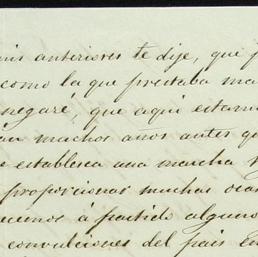 mis anteriores te dije, que p
como la que prestaba ma
negaré, que aqui estamo
án muchos años antes qu
e establesca una marcha
proporcionar muchas oca
ecemos á partido alguno
convulciones del pais en